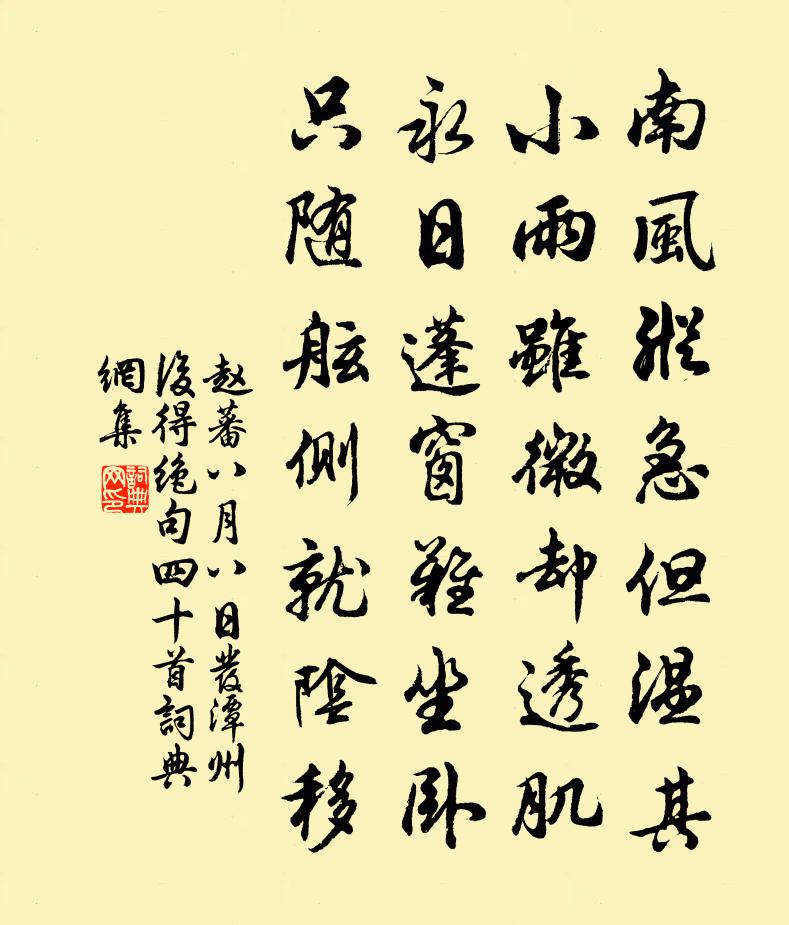 南風縱急但温其
小雨雖微却透肌
永日蓬窗難坐卧
只随舷側就陰移
赵蕃八月八日發潭州
後得绝句四十首詞典
網集
詞典網印